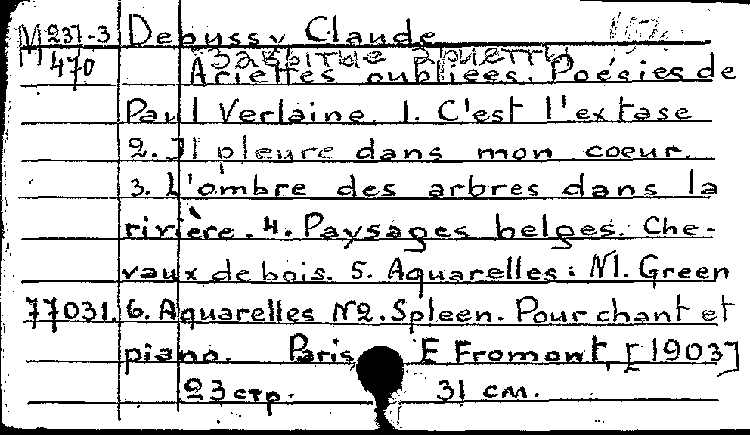 M 231-3 Debussy Claude
470 Забытые ариетты
Ariettes oubliées. Poésies de
Paul Verlaine. 1. C'est l'extase
2. Il pleure dans mon coeur.
3. L'ombre des arbres dans la
rivière. 4. Paysages belges. Che-
vaux de bois. 5. Aquarelles: N1. Green
77031. 6. Aquarelles N2. Spleen. Pour chant et
piano. Paris E Fromont, [1903]
23 стр. 31 см.